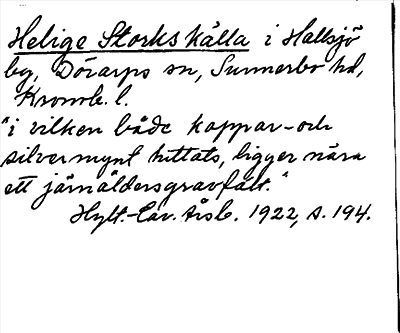 Helige Storks källa i Hallsjö
by, Dörarps sn, Sunnerbo hd,
Kronob. l.
"i vilken både koppar- och
silvermynt hittats, ligger nära
ett järnåldersgravfält."
Hylt.-Cav. årsb. 1922, s. 194.